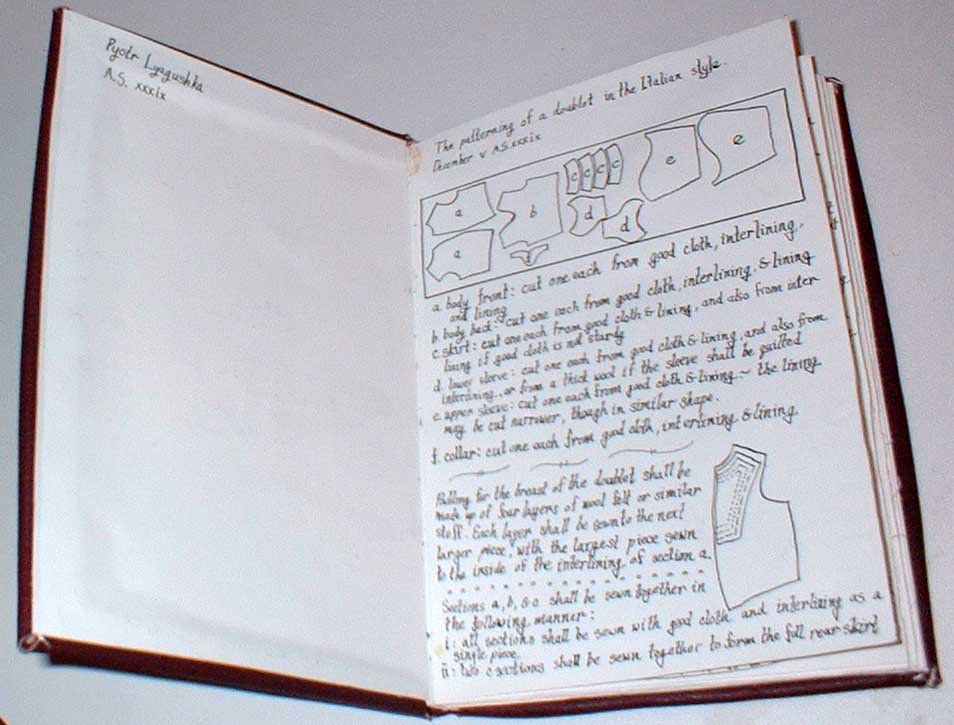 Pyotr Lyagushka
A.S. xxxix
The patterning of a doublet in the Italian style.
December v A.S. xxxix
a
a
b
c c c c
d
d
e
e
f
a. body front: cut one each from good cloth, interlining,
and lining
b. body back: cut one each from good cloth, interlining, & lining
c. skirt: cut one each from good cloth & lining, and also from inter
lining if good cloth is not sturdy
d. lower sleeve: cut one each from good cloth & lining, and also from
interlining, or from a thick wool if the sleeve shall be quilted
e. upper sleeve: cut one each from good cloth & lining ~ the lining
may be cut narrower, though in similar shape.
f. collar: cut one each from good cloth, interlining & lining
Padding for the breast of the doublet shall be
made up of four layers of wool felt or similar
stuff. Each layer shall be sewn to the next
larger piece, with the largest piece sewn
to the inside of the interlining of section a.
Sections a, b, & c shall be sewn together in
the following manner:
i: all sections shall be sewn with good cloth and interlining as a
single piece
ii: two c sections shall be sewn together to form the full rear skirt